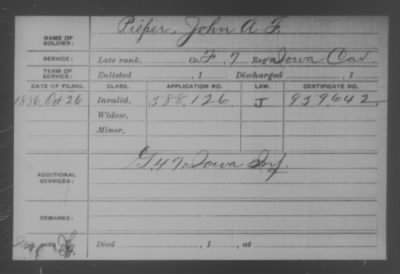 NAME OF SOLDIER: Pieper, John A. F.
SERVICE: Late rank, Co. F, 7 Reg't Iowa Cav.
TERM OF SERVICE: Enlisted , 1 Discharged , 1
DATE OF FILING. CLASS. APPLICATION NO. LAW. CERTIFICATE NO.
1886 Oct 26 Invalid, 588.126 J 959.642.
Widow,
Minor,
ADDITIONAL SERVICES: G. 47 Iowa Inf.
REMARKS:
Died , 1 , at